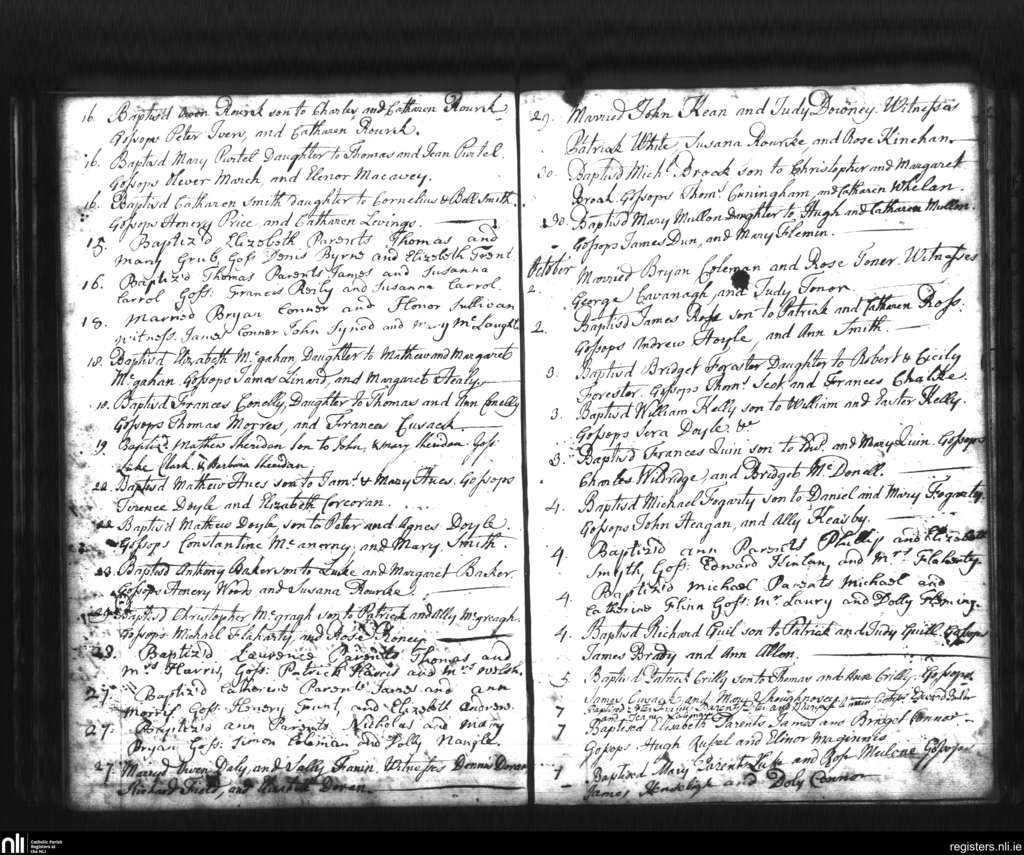 16. Baptis'd Owen Rourk son to Charles and Catharen Rourk
Gossops Peter Ivers, and Catharen Rourk.
16. Baptisd Mary Purtel Daughter to Thomas and Jean Purtel.
Gossops Olever March, and Elenor Macavey.
16. Baptisd Catharen Smith daughter to Cornelius & Bell Smith.
Gossops Henery Price, and Catharen Levings.
15. Baptiz'd Elizebeth Parents Thomas and
Mary Grub, Goss: Denis Byrne and Elizebeth Trent.
16. Baptiz'd Thomas Parents James and Susanna
Carrol Goss: Francis Reily and Susanna Carrol.
18. Married Bryan Conner and Honor Sullivan
witness. James Conner John Synod and Mary McLaughl
18. Baptisd Elizabeth McGahan, Daughter to Mathew and Margaret
McGahan. Gossops James Linard, and Margaret Healy.
18. Baptisd Frances Conolly, Daughter to Thomas and Ann Conolly
Gossops Thomas Morres, and Frances Cusack.
19. Baptiz'd Mathew Sheridan son to John, & Mary Sheridan. Goss
Luke Clark, & Barbara Sheridan
22. Baptisd Mathew son to Jams & Mary Gossops
Terence Doyle and Elizabeth Corcoran.
22 Baptisd Mathew Doyle, son to Peter and Agnes Doyle.
Gossops Constantine McAnerny, and Mary Smith.
23. Baptisd Anthony Baker son to Luke and Margaret Backer.
Gossops Henery Wood and Susana Rourke
Baptisd Christopher McGragh son to Patrick and Ally McGreagh.
Gossops Michael Flaharty, and Rose Roney
28. Baptiz'd Laurence Parents Thomas and
Mrs Harris, Goss: Patrick Harris and Mrs
27. Baptiz'd Catherine Parents James and Ann
Morris Goss: Henery and Elizebeth Andrews.
27. Baptiz'd Ann Parents Nicholas and Mary
Bryan Goss: Simon Coleman and Polly Nangle
27. Married Owen Daly, and Sally Witnesses Dennis Doran
Richard Field, and Elizabeth Doran.
29. Married John Kean and Judy Downey. Witnesses
Patrick White, Susana Rourke and Rose Kinehan
30. Baptisd Mich: Broak son to Christopher and Margarett
Broak Gossops Thoms Cuningham, and Catharen Whelan.
30. Baptisd Mary Mullon daughter to Hugh and Catharen Mullon.
Gossops James Dun, and Mary Flemin.
October
2. Married Bryan Coleman and Rose Toner. Witnesses
George Cavanagh, and Judy Tonor.
2. Baptisd James Ross son to Patrick and Catharen Ross.
Gossops Andrew Hoyle, and Ann Smith
3. Baptisd Bridget Forester Daughter to Robert & Cicily
Forester. Gossops Thoms Scot and Frances Chalke.
3. Baptisd William Kelly son to William and Easter Kelly.
Gossops Sera Doyle &c
3. Baptisd Frances Quin son to and Mary Quin. Gossops
Charles Wilbridge, and Bridget McDonell.
4. Baptisd Michael Fogarty son to Daniel and Mary Fogarty.
Gossops John Heagan, and Ally Keasby.
4. Baptiz'd Ann Parents Phillip and Elizabeth
Smyth, Goss: Edward Kinlan, and Mrs Flaherty
4. Baptiz'd Michael Parents Michael and
Catherine Flinn Goss: Mr Laury and Dolly Fleming.
4. Baptisd Richard Guil son to Patrick and Judy Guill. Gossops
James Brady and Ann Allon.
5. Baptisd Patrick Crilly son to Thomas and Anne Crilly. Gossops
James Cusack and Mary Shaughnessey
7
7 Baptised Elisabeth Parents James and Bridget Connor
Gossops Hugh Russel and Elinor Maginniss
7 Baptised Mary Parents Luke and Rose Mulene Gossops
James and Doly Connor
nli
Catholic Parish
Registers at
the NLI
registers.nli.ie